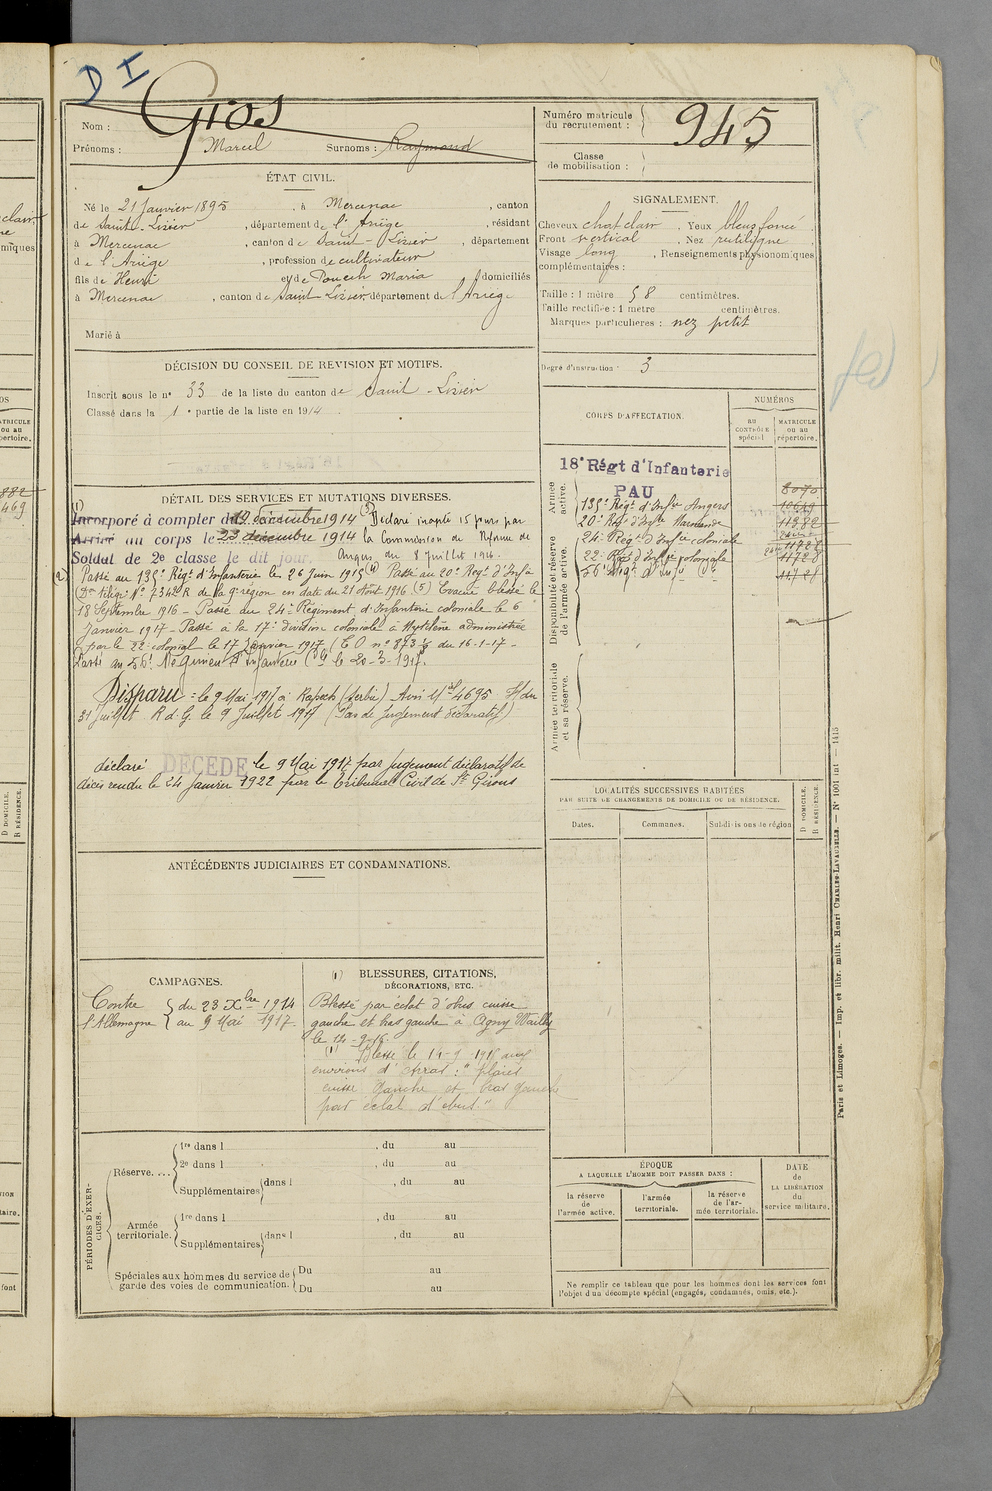 D I
Gros
Nom :
Prénoms : Marcel Surnoms : Raymond
Numéro matricule du recrutement : 945
Classe de mobilisation :
ÉTAT CIVIL.
Né le 21 Janvier 1895, à Mercenac, canton
de Saint-Lizier, département de l'Ariège, résidant
à Mercenac, canton de Saint-Lizier, département
de l'Ariège, profession de cultivateur
fils de Henri et de Pouech Maria domiciliés
à Mercenac, canton de Saint Lizier département de l'Ariège
Marié à
SIGNALEMENT.
Cheveux chat clair. Yeux bleus foncé
Front vertical. Nez rectiligne
Visage long, Renseignements physionomiques
complémentaires :
Taille : 1 mètre 58 centimètres.
Taille rectifiée : 1 mètre centimètres.
Marques particulières : nez petit
Degré d'instruction : 3
DÉCISION DU CONSEIL DE REVISION ET MOTIFS.
Inscrit sous le n° 33 de la liste du canton de Saint-Lizier
Classé dans la 1e partie de la liste en 1914
CORPS D'AFFECTATION.
NUMÉROS
au CONTRÔLE spécial
MATRICULE ou au répertoire.
Armée active.
18e Régt d'Infanterie
PAU 8070
135e Régt d'Infie Angers 10649
20e Régt d'Infie Marmande 11282
24e Régt d'Infie coloniale
22e Régt d'Infie coloniale 11728
56e Régt d'Infie Cle 11728
Disponibilité et réserve de l'armée active.
Armée territoriale et sa réserve.
DÉTAIL DES SERVICES ET MUTATIONS DIVERSES.
(1)
Incorporé à compter du 19 décembre 1914 Déclaré inapte 15 jours par
Arrivé au corps le 23 décembre 1914 la Commission de Réforme de
Soldat de 2e classe le dit jour. Angers du 8 Juillet 1916.
(2) Passé au 135e Régt d'Infanterie le 26 Juin 1915 (4) Passé au 20e Regt d'Infie
Don télégr. N° 7342 R de la 9e région en date du 21 Août 1916 (5) Evacué blessé le
18 Septembre 1916 - Passé au 24e Régiment d'Infanterie coloniale le 6
Janvier 1917 - Passé à la 17e division coloniale à Mytilène administrée
par le 22e colonial le 17 Janvier 1917 (E O n° 873 du 16-1-17 -
Passé au 56e Régiment d'Infanterie Cle le 20-3-1917.
Disparu : le 9 Mai 1917 à Rapesch (Serbie) Avis Mel 4695 du
31 Juillet R. d. G. le 9 Juillet 1917 (Pas de Jugement déclaratif)
déclaré DÉCÉDÉ le 9 Mai 1917 par jugement déclaratif de
décès rendu le 24 Janvier 1922 par le tribunal Civil de St Girons
LOCALITÉS SUCCESSIVES HABITÉES
PAR SUITE DE CHANGEMENTS DE DOMICILE OU DE RÉSIDENCE.
Dates. Communes. Subdivisions de région
D DOMICILE.
R RÉSIDENCE.
ANTÉCÉDENTS JUDICIAIRES ET CONDAMNATIONS.
CAMPAGNES.
Contre l'Allemagne
du 23 Xbre 1914
au 9 Mai 1917.
(1) BLESSURES, CITATIONS,
DÉCORATIONS, ETC.
Blessé par éclat d'obus cuisse
gauche et bras gauche à Agny Wailly
le 14-9-16.
(1) Blessé le 14-9 1916 aux
environs d'Arras : "plaies
cuisse gauche et bras gauche
par éclat d'obus."
PÉRIODES D'EXERCICES.
Réserve....
1re dans l , du au
2e dans l , du au
Supplémentaires dans l , du au
Armée territoriale.
1re dans l , du au
Supplémentaires dans l , du au
Spéciales aux hommes du service de garde des voies de communication.
Du au
Du au
ÉPOQUE
A LAQUELLE L'HOMME DOIT PASSER DANS :
la réserve de l'armée active.
l'armée territoriale.
la réserve de l'armée territoriale.
DATE de LA LIBÉRATION du service militaire.
Ne remplir ce tableau que pour les hommes dont les services font
l'objet d'un décompte spécial (engagés, condamnés, omis, etc.).
Paris et Limoges. — Imp. et libr. milit. Henri CHARLES-LAVAUZELLE. — N° 1001 int — 1415